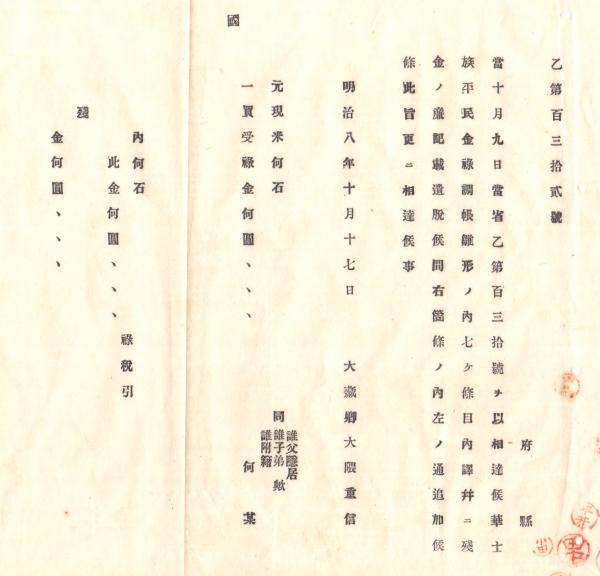 乙第百三拾貳號
府縣
當十月九日當省乙第百三拾號ヲ以相達候華士
族平民金祿調帳雛形ノ內七ケ條目內譯幷ニ殘
金ノ廉記載遺脫候間右箇條ノ內左ノ通追加候
條此旨更ニ相達候事
明治八年十月十七日 大藏卿大隈重信
元現米何石
同
誰父隱居
誰子弟歟
誰附籍
一買受祿金何圓、、、 何某
國
內何石
此金何圓、、、 祿稅引
殘
金何圓、、、